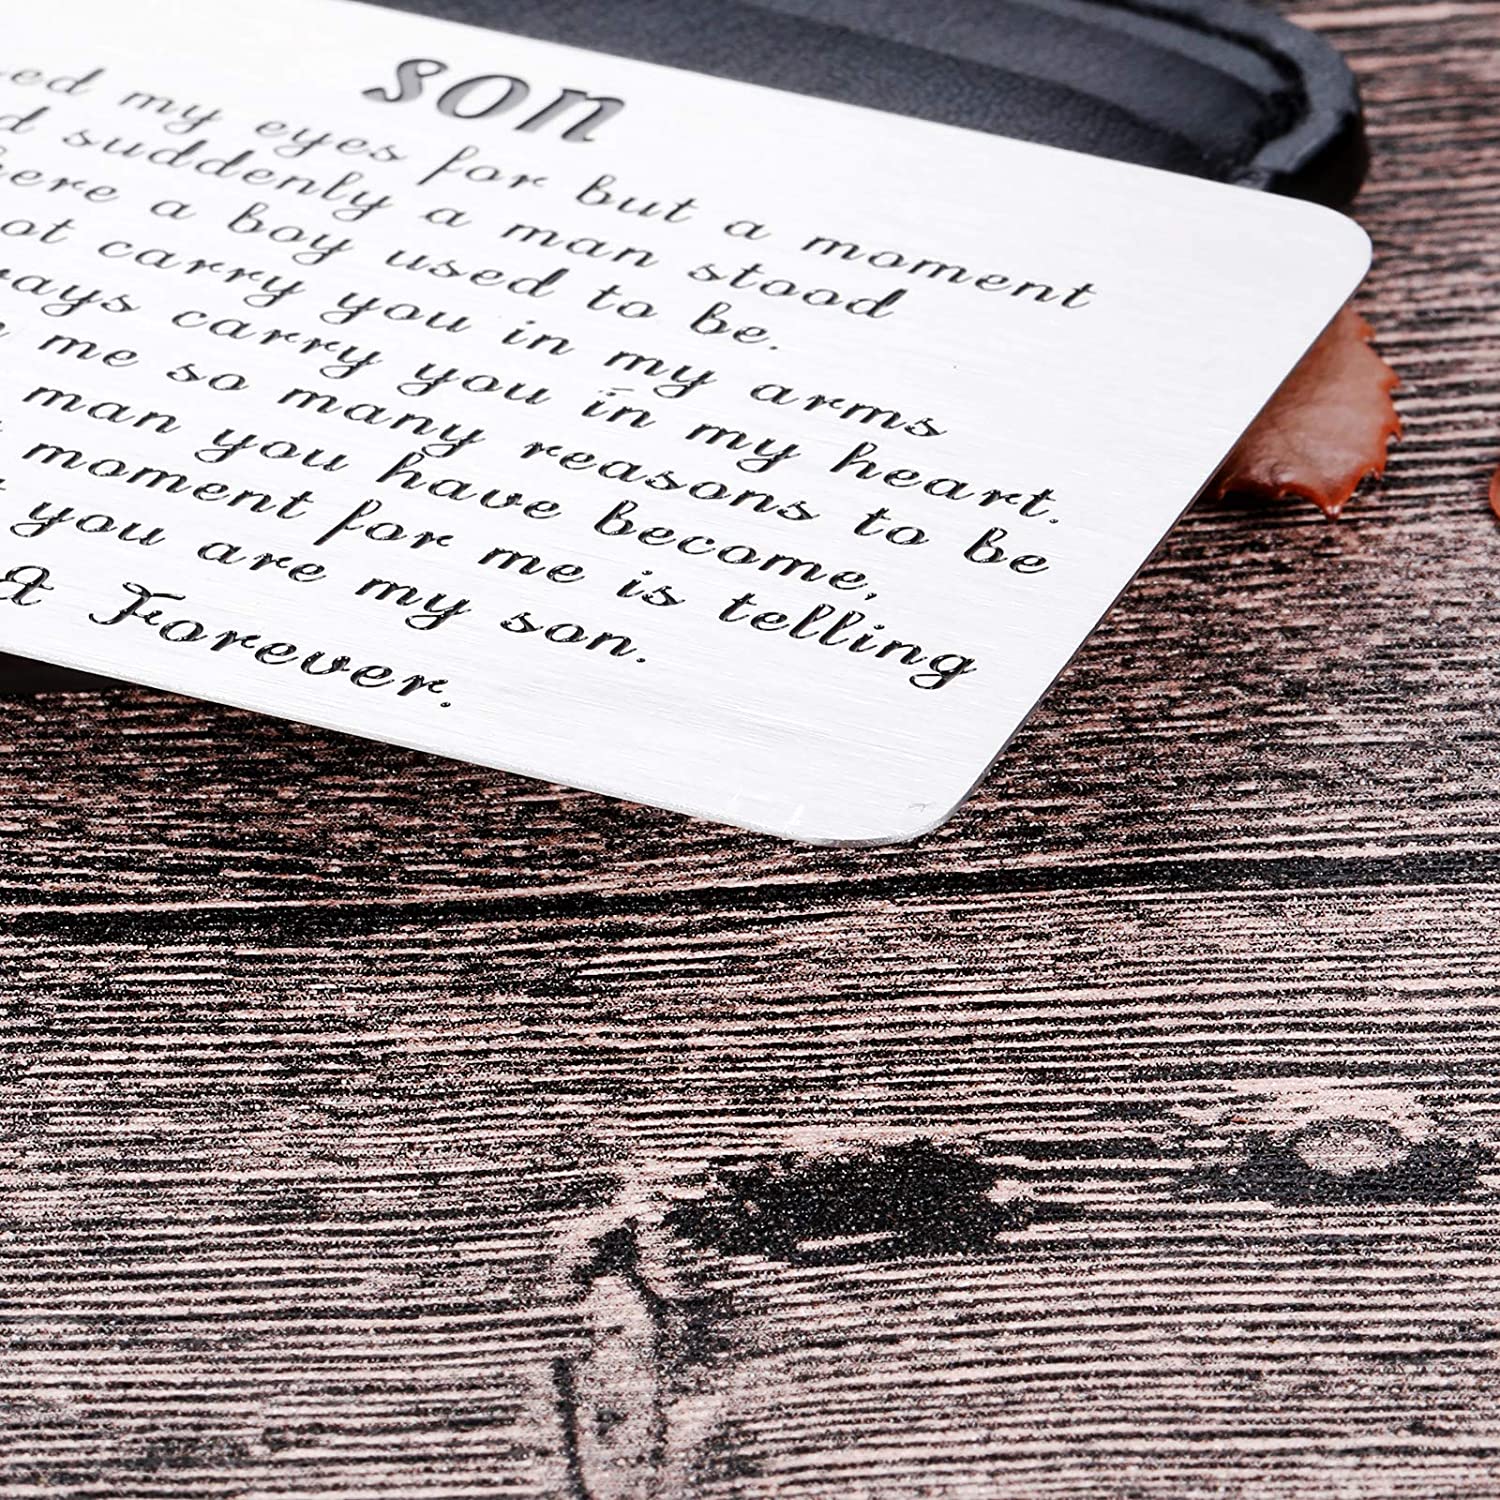 son
my eyes for but a moment
suddenly a man stood
a boy used to be.
carry you in my arms
carry you in my heart.
me so many reasons to be
man you have become,
moment for me is telling
you are my son.
& Forever.